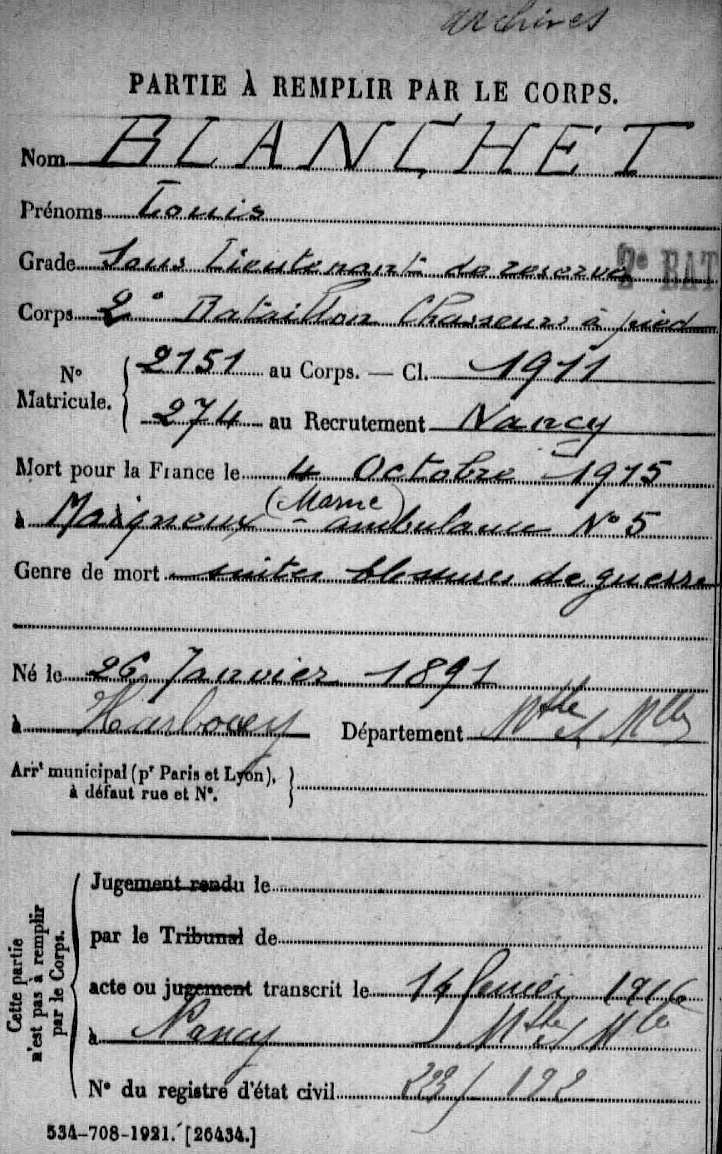 archives
PARTIE À REMPLIR PAR LE CORPS.
Nom BLANCHET
Prénoms Louis
Grade Sous Lieutenant de reserve
2e BAT
Corps 2e Bataillon Chasseurs à pied
No Matricule. 2151 au Corps. — Cl. 1911
274 au Recrutement Nancy
Mort pour la France le 4 Octobre 1915
à (Marne) ambulance No 5
Genre de mort suites blessures de guerre
Né le 26 Janvier 1891
à Harbouey Département Mthe et Mlle
Arrt municipal (pr Paris et Lyon),
à défaut rue et No.
Cette partie
n'est pas à remplir
par le Corps.
Jugement rendu le
par le Tribunal de
acte ou jugement transcrit le 14 1916
à Nancy Mthe et Mlle
No du registre d'état civil 192
534-708-1921. [26434.]